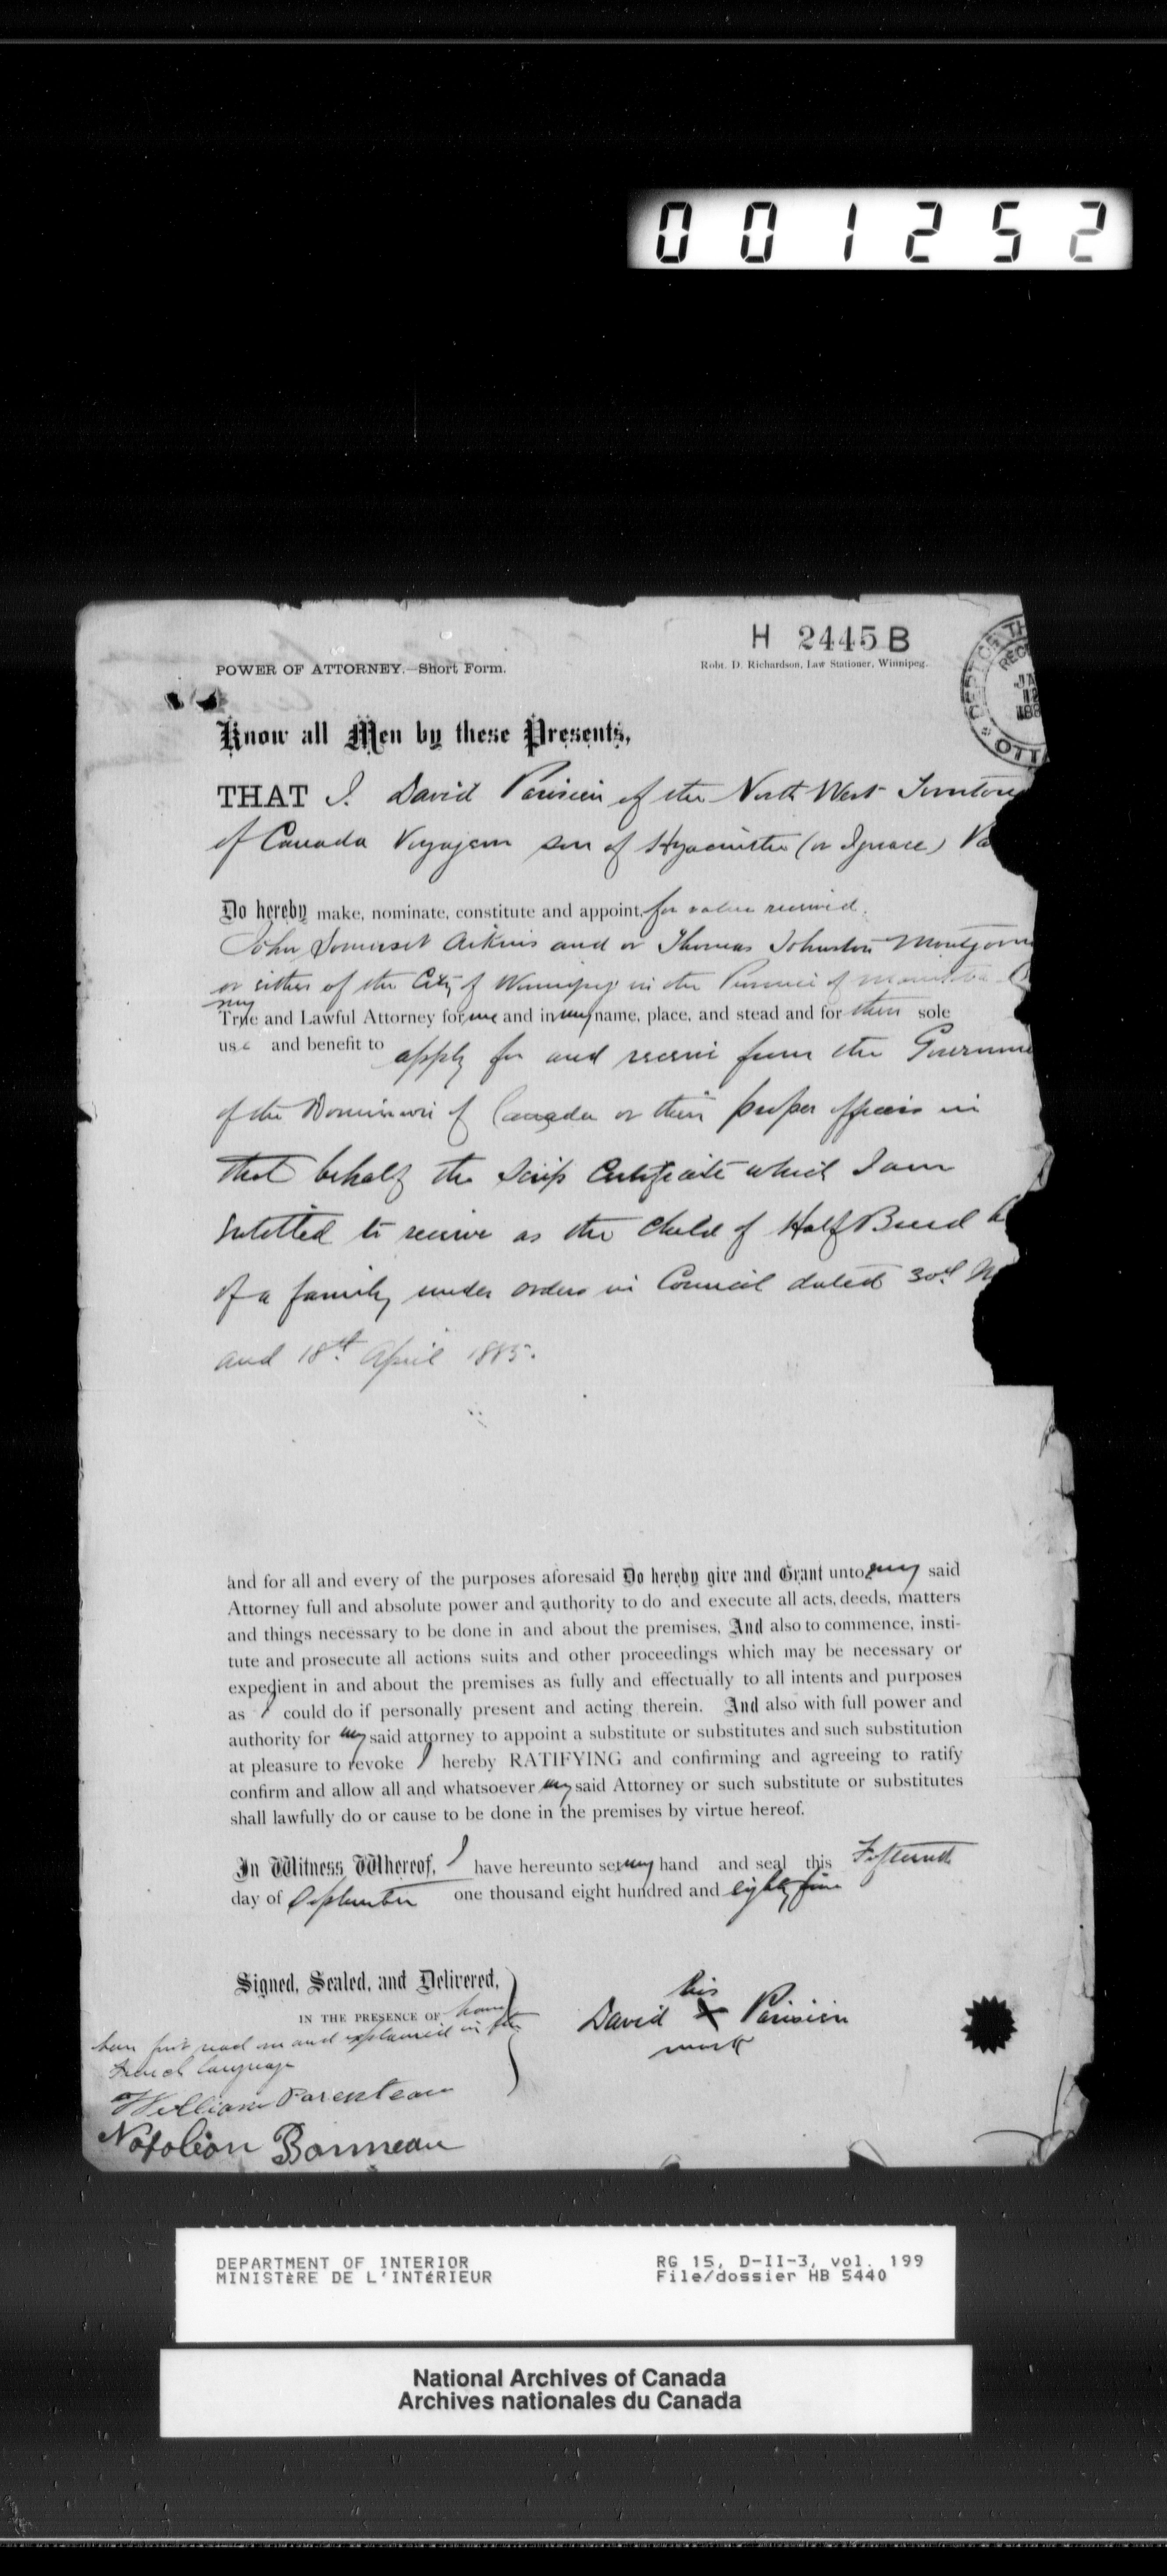 001252
H 2445 B
POWER OF ATTORNEY.—Short Form.
Robt. D. Richardson, Law Stationer, Winnipeg.
DEPT OF TH
REC
JA
12
188
OTT
Know all Men by these Presents,
THAT I. David Parisien of the North West Territor
of Canada Voyageur son of Hyacinthe (or Ignace) Pa
Do hereby make, nominate, constitute and appoint, for value received.
John Somerset Aikins and or Thomas Johnston Montgom
or either of the City of Winnipeg in the Province of Manitoba
my
True and Lawful Attorney for me and in my name, place, and stead and for their sole
use and benefit to apply for and receive from the Governme
of the Dominion of Canada or their proper officers in
that behalf the Scrip Certificate which I am
entitled to receive as the child of Half Breed h
of a family under orders in Council dated 30th M
and 18th April 1885.
and for all and every of the purposes aforesaid Do hereby give and Grant unto my said
Attorney full and absolute power and authority to do and execute all acts, deeds, matters
and things necessary to be done in and about the premises, And also to commence, insti-
tute and prosecute all actions suits and other proceedings which may be necessary or
expedient in and about the premises as fully and effectually to all intents and purposes
as I could do if personally present and acting therein. And also with full power and
authority for my said attorney to appoint a substitute or substitutes and such substitution
at pleasure to revoke I hereby RATIFYING and confirming and agreeing to ratify
confirm and allow all and whatsoever my said Attorney or such substitute or substitutes
shall lawfully do or cause to be done in the premises by virtue hereof.
In Witness Whereof, I have hereunto set my hand and seal this Fifteenth
day of September one thousand eight hundred and eighty five
Signed, Sealed, and Delivered,
IN THE PRESENCE OF having
been first read over and explained in the
French language
William Parenteau
Napoléon Bonneau
his
David X Parisien
mark
DEPARTMENT OF INTERIOR
MINISTÈRE DE L'INTÉRIEUR
RG 15, D-II-3, vol. 199
File/dossier HB 5440
National Archives of Canada
Archives nationales du Canada